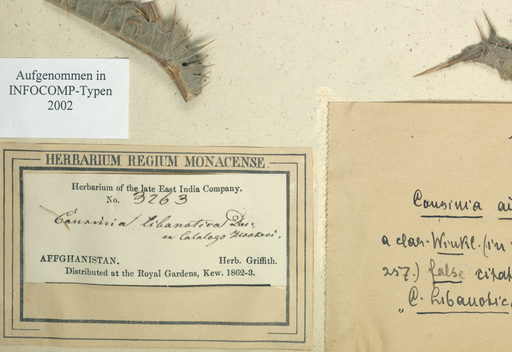 Aufgenommen in
INFOCOMP-Typen
2002
HERBARIUM REGIUM MONACENSE.
Herbarium of the late East India Company.
No. 3263
Cousinia libanotica
en Catalogo
AFFGHANISTAN. Herb. Griffith.
Distributed at the Royal Gardens, Kew. 1862-3.
Cousinia
a clar. Winkl. (in
257.) false citat
"C. Libanotic